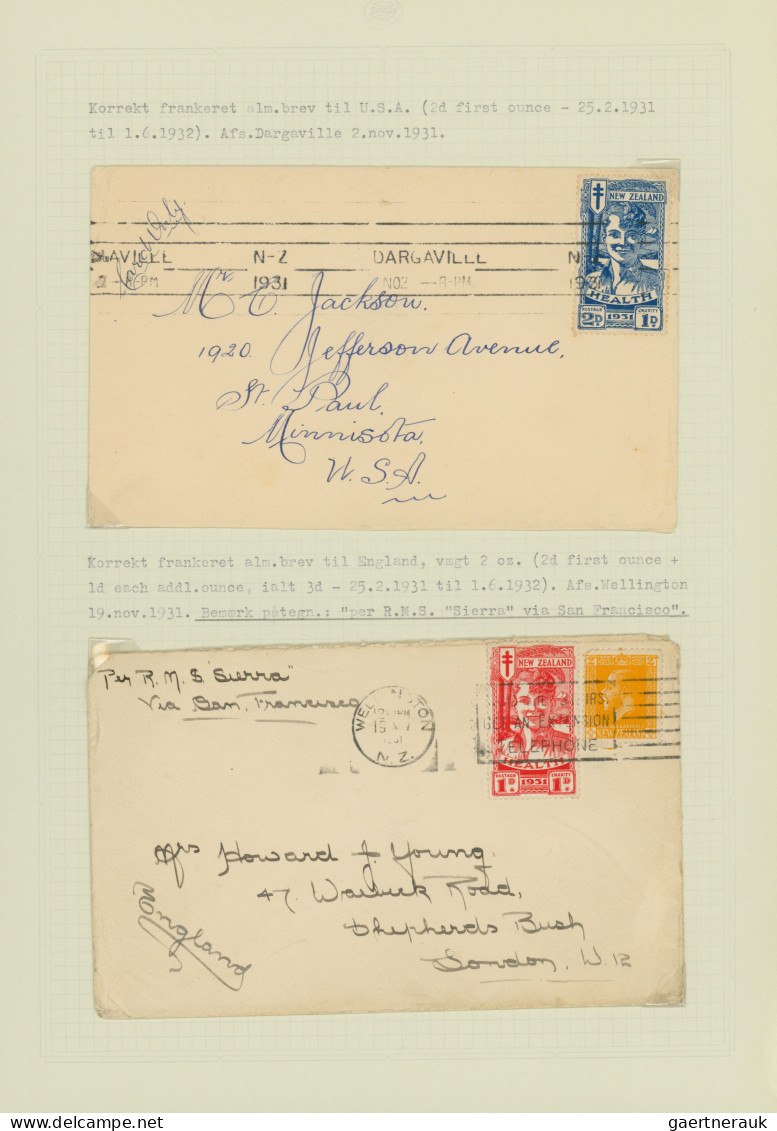 Korrekt frankeret alm.brev til U.S.A. (2d first ounce - 25.2.1931
til 1.6.1932). Afs.Dargaville 2.nov.1931.
Card Only
NEW ZEALAND
HEALTH
POSTAGE 1931 CHARITY
2D. 1D.
AVILLE N-Z DARGAVILLE N
2 -PM 1931 NO2 -8-PM 1931
Mr C. Jackson.
1920. Jefferson Avenue,
St. Paul.
Minnisota.
U.S.A.
Korrekt frankeret alm.brev til England, vægt 2 oz. (2d first ounce +
1d each addl.ounce, ialt 3d - 25.2.1931 til 1.6.1932). Afs.Wellington
19.nov.1931. Bemærk påtegn.: "per R.M.S. "Sierra" via San Francisco".
Per R.M.S "Sierra"
Via San Francisco
NEW ZEALAND
HEALTH
POSTAGE 1931 CHARITY
1D. 1D.
NEW ZEALAND
WEL TON
19
N.Z.
GET AN EXTENSION
TELEPHONE
Mrs Howard J. Young.
47, Warwick Road,
Shepherds Bush
London, W.12
England
gaertnerauk